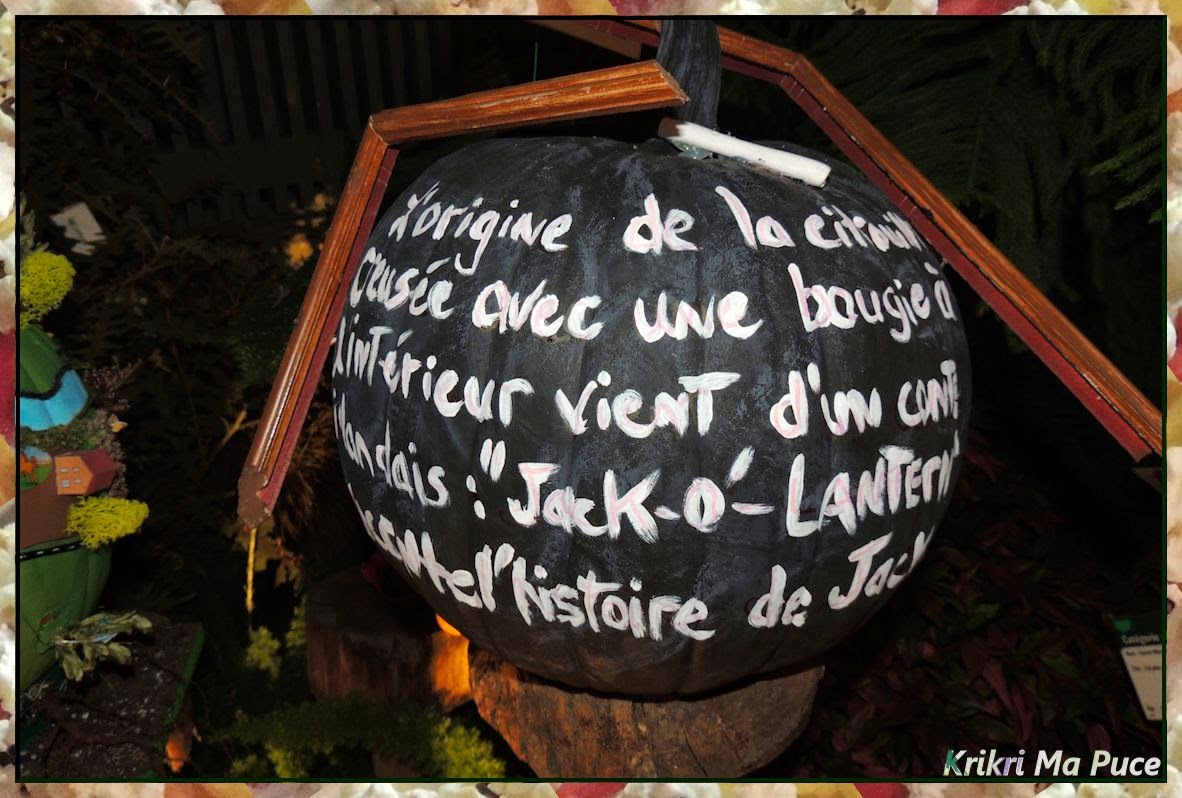 L'origine de la citouill
creusée avec une bougie à
l'intérieur vient d'un conte
irlandais : "Jack-O'-LANTERN"
l'histoire de Jack
Catégorie
Krikri Ma Puce